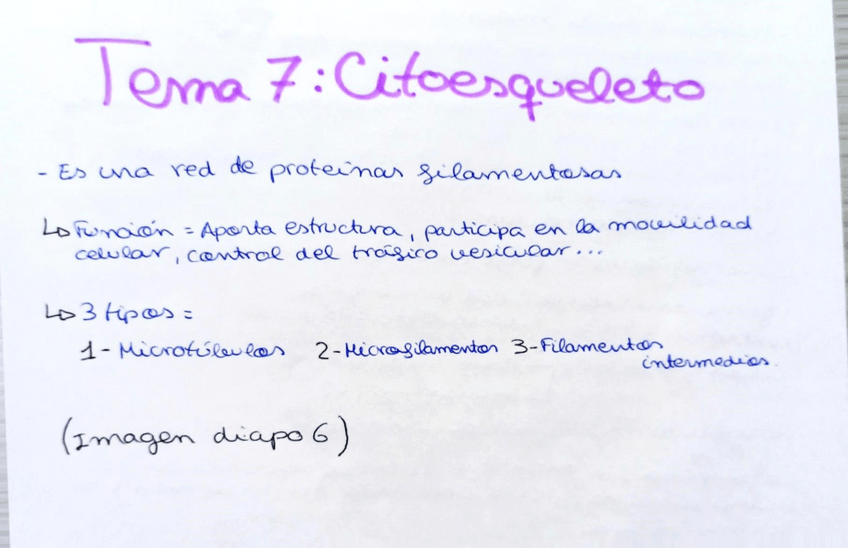 Tema 7: Citoesqueleto
- Es una red de proteínas filamentosas
↳ Función = Aporta estructura, participa en la movilidad
celular, control del tráfico vesicular...
↳ 3 tipos =
1- Microtúbulos 2- Microfilamentos 3- Filamentos
intermedios.
(Imagen diapo 6)